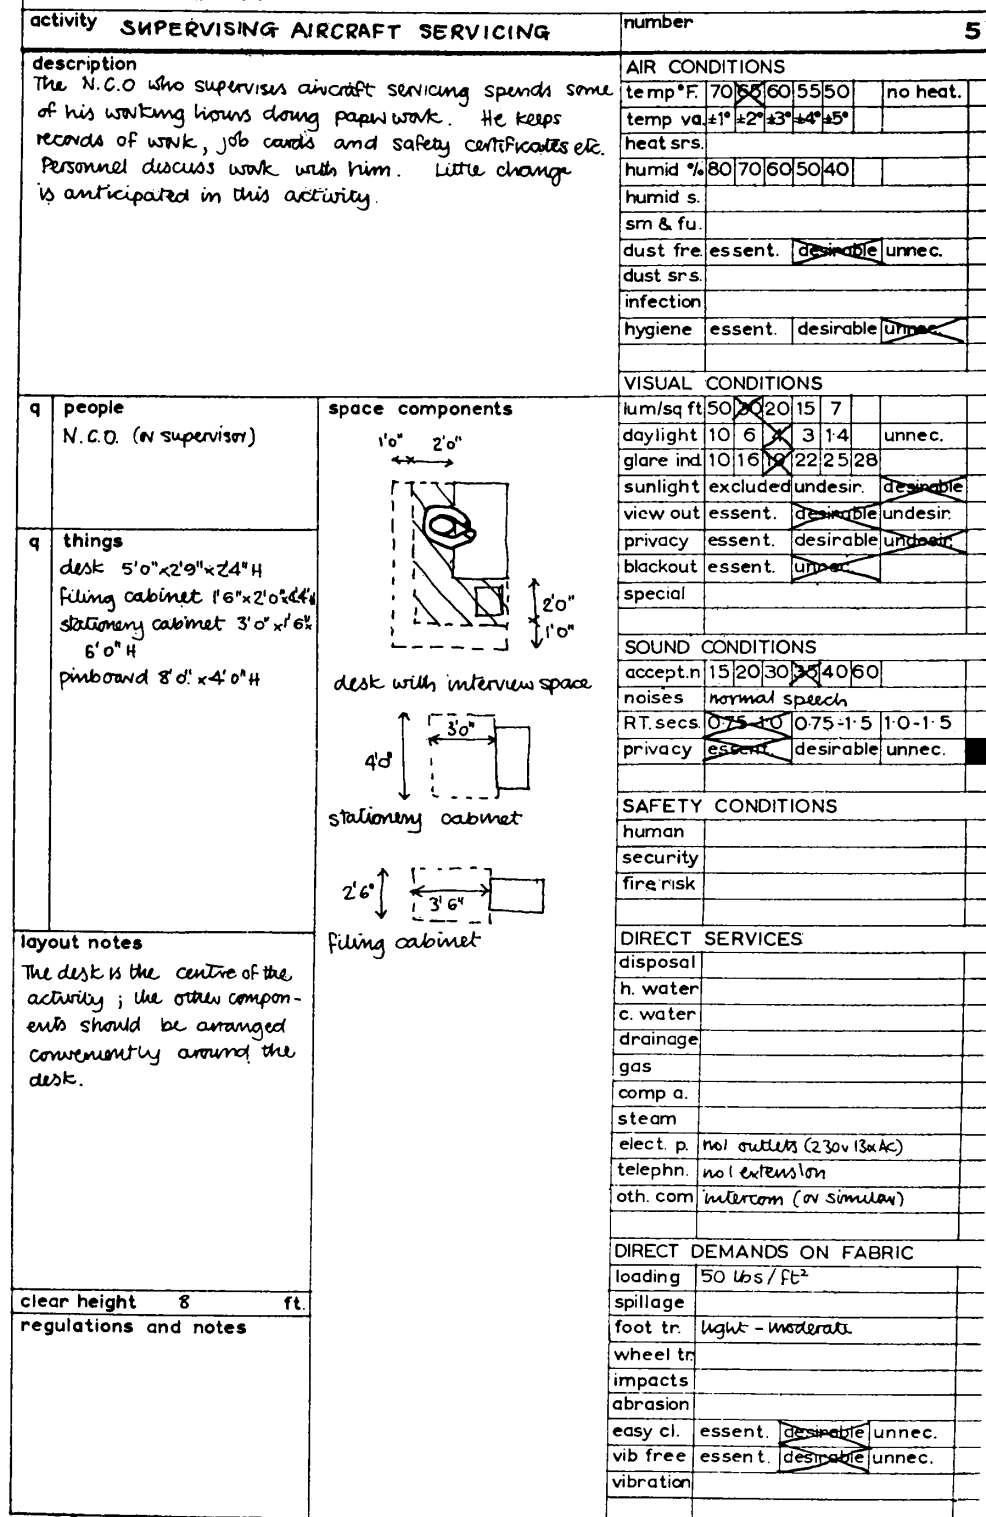 activity SUPERVISING AIRCRAFT SERVICING
number 5
description
The N.C.O who supervises aircraft servicing spends some
of his working hours doing paper work. He keeps
records of work, job cards and safety certificates etc.
Personnel discuss work with him. Little change
is anticipated in this activity.
q people
N.C.O. (or supervisor)
q things
desk 5'0"x2'9"x2'4"H
filing cabinet 1'6"x2'0"x4'4"
stationery cabinet 3'0"x1'6"x
6'0"H
pinboard 8'0"x4'0"H
layout notes
The desk is the centre of the
activity; the other compon-
ents should be arranged
conveniently around the
desk.
clear height 8 ft.
regulations and notes
space components
1'0" 2'0"
2'0"
1'0"
desk with interview space
3'0"
4'0"
stationery cabinet
2'6"
3'6"
filing cabinet
AIR CONDITIONS
temp°F. 70 65 60 55 50 no heat.
temp va. ±1° ±2° ±3° ±4° ±5°
heat srs.
humid % 80 70 60 50 40
humid s.
sm & fu.
dust fre essent. desirable unnec.
dust srs.
infection
hygiene essent. desirable unnec.
VISUAL CONDITIONS
lum/sq ft 50 30 20 15 7
daylight 10 6 4 3 1·4 unnec.
glare ind 10 16 19 22 25 28
sunlight excluded undesir. desirable
view out essent. desirable undesir.
privacy essent. desirable undesir.
blackout essent. unnec.
special
SOUND CONDITIONS
accept.n 15 20 30 35 40 60
noises normal speech
RT. secs. 0·75-1·0 0·75-1·5 1·0-1·5
privacy essent. desirable unnec.
SAFETY CONDITIONS
human
security
fire risk
DIRECT SERVICES
disposal
h. water
c. water
drainage
gas
comp a.
steam
elect. p. no1 outlets (230v 13a AC)
telephn. no1 extension
oth. com intercom (or similar)
DIRECT DEMANDS ON FABRIC
loading 50 lbs/ft²
spillage
foot tr. light - moderate
wheel tr.
impacts
abrasion
easy cl. essent. desirable unnec.
vib free essent. desirable unnec.
vibration